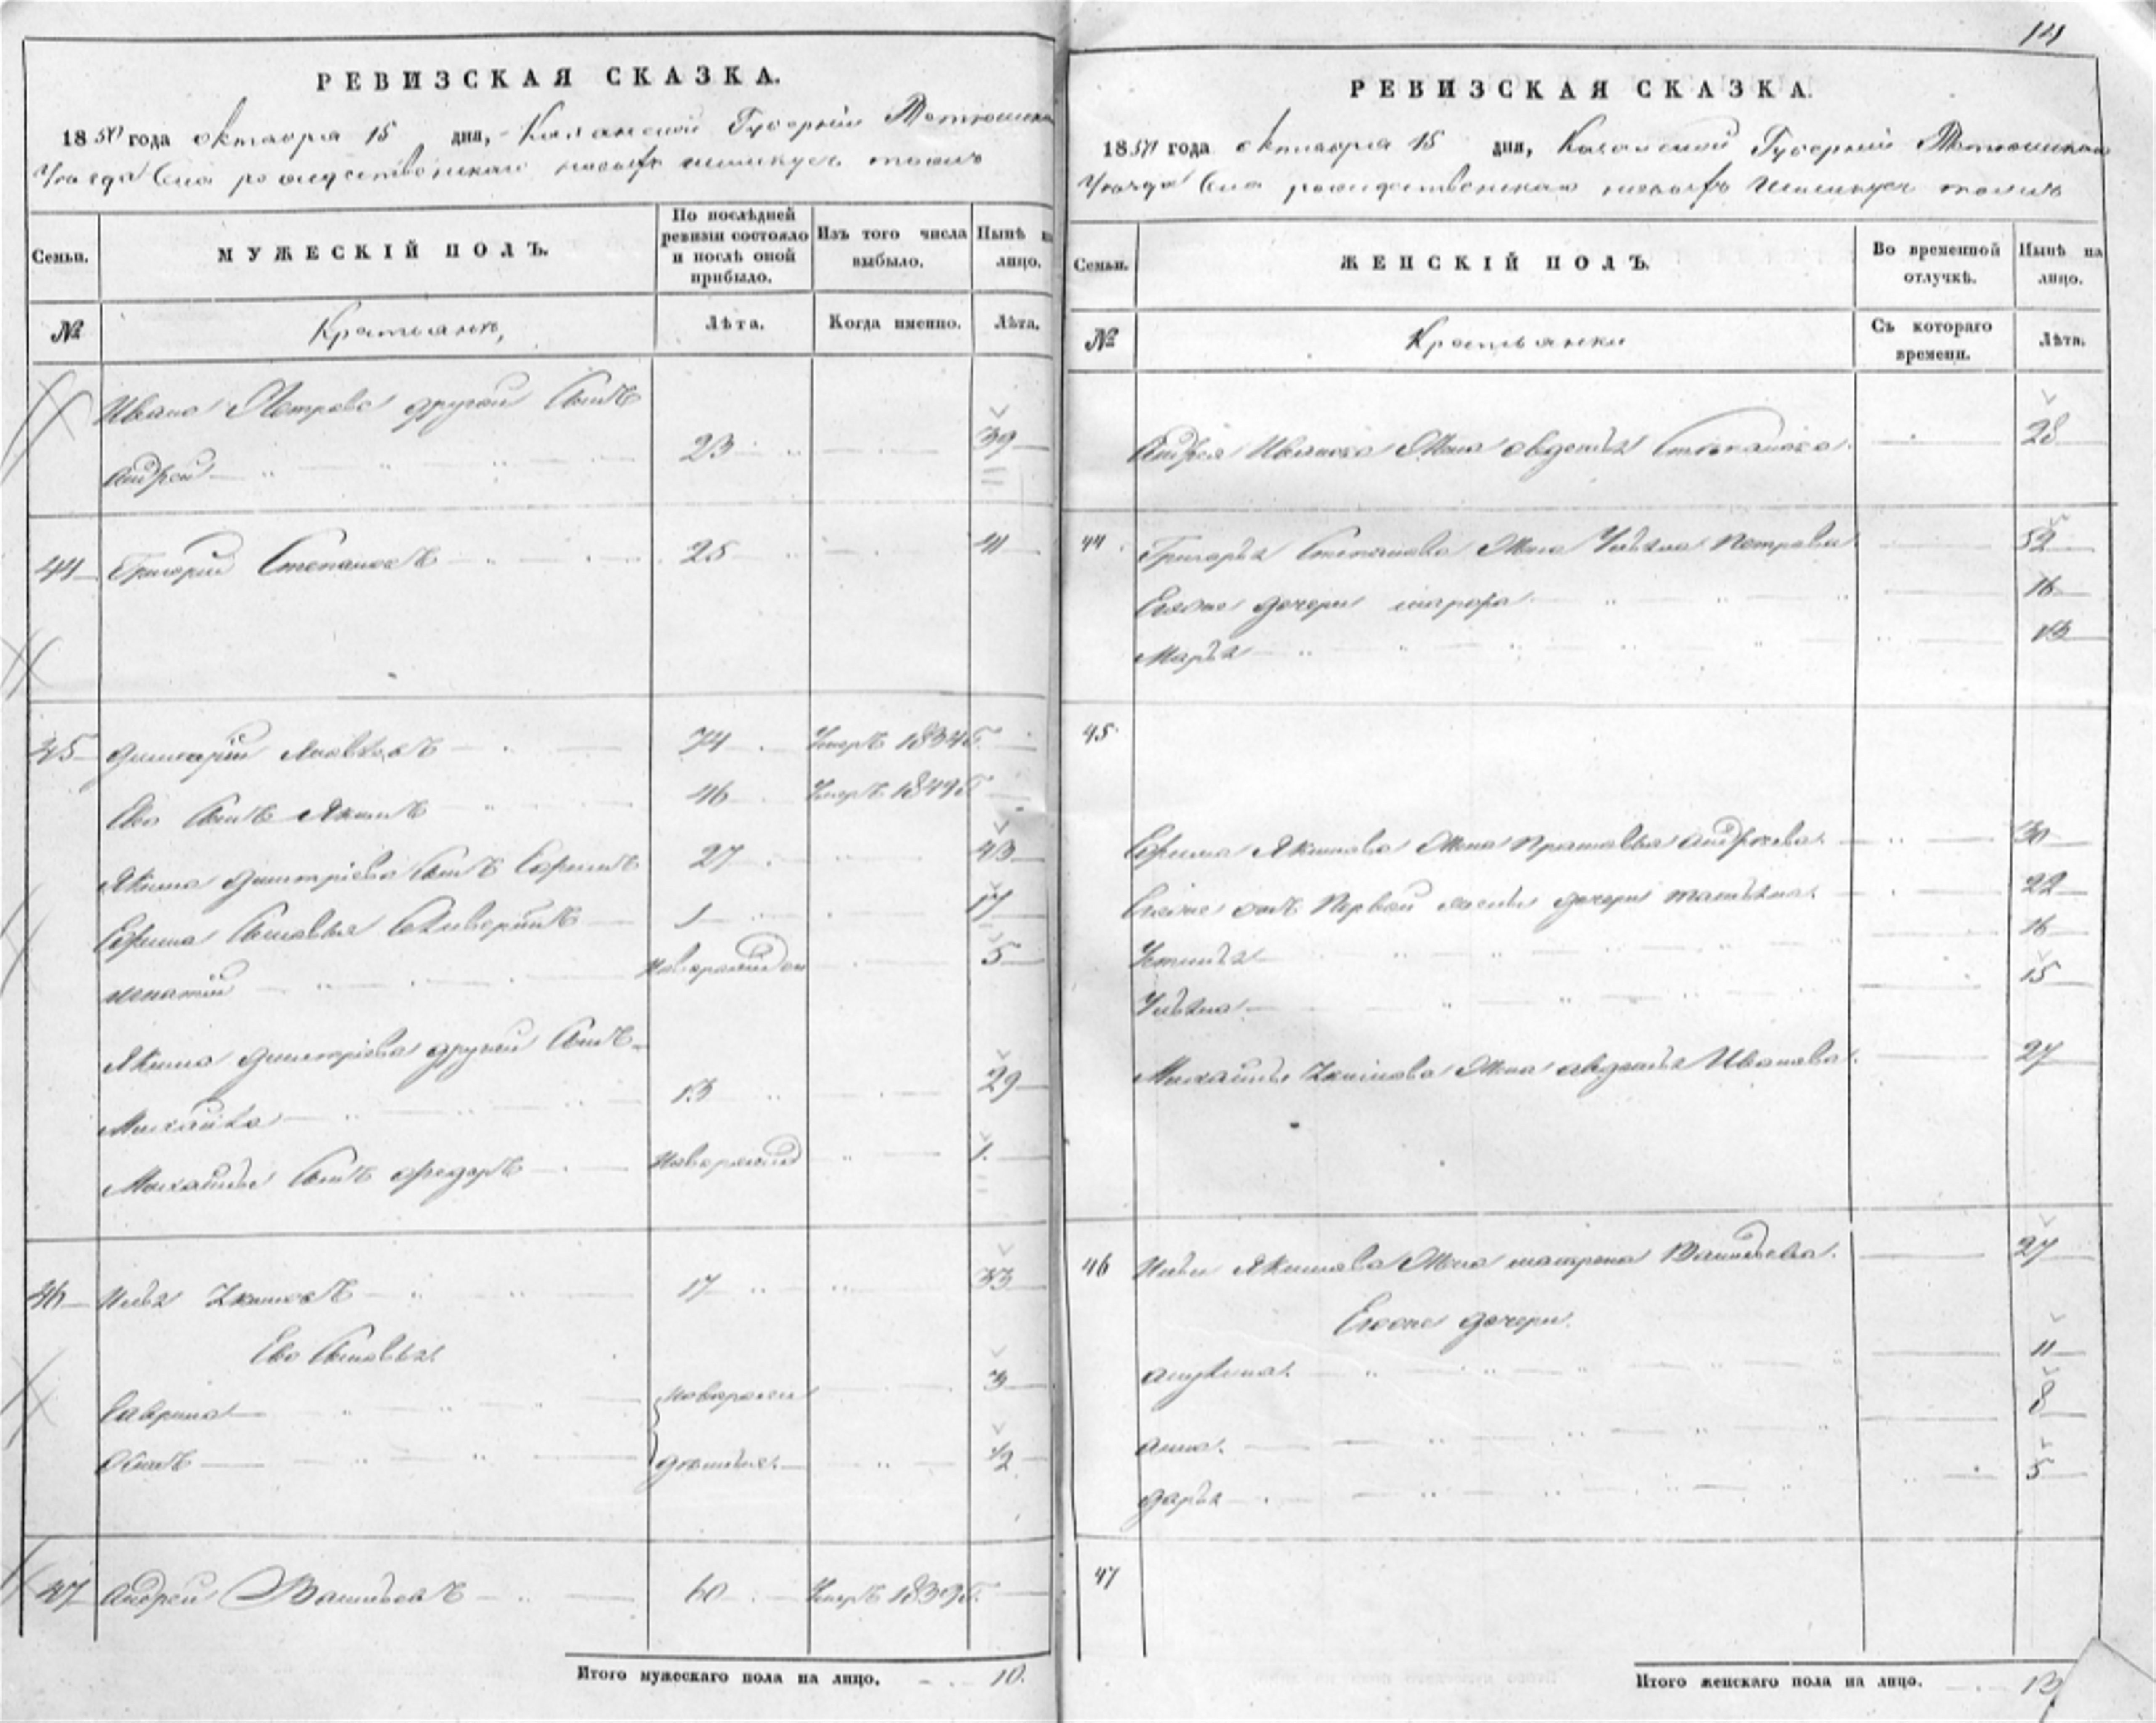 14
РЕВИЗСКАЯ СКАЗКА.
1850 года октября 15 дня, Казанской Губерніи Тетюшска
Уезда Села рождественскаго тожъ
Семьи.
МУЖЕСКІЙ ПОЛЪ.
По послѣдней ревизіи состояло и послѣ оной прибыло.
Изъ того числа выбыло.
Нынѣ на лицо.
№
Лѣта.
Когда именно.
Лѣта.
Ивана Петрова другой Сынъ
Андрей 23 39
44 Григорий Степановъ 25 41
45 Дмитрій 74 Умеръ 1834 Г.
Ево Сынъ Якимъ 46 Умеръ 1849 Г
Якима Дмитріева Сынъ Ефимъ 27 43
Ефима Сыновья 1 17
Игнатій Новорожден 5
Якима Дмитріева другой Сынъ
Михайла 13 29
Михайлы Сынъ Федоръ Новорожден 1.
46 Илья Якимовъ 17 33
Ево Сыновья
Гаврила новорожден 3
Осипъ 1/2
47 Андрей Васильевъ 60 Умеръ 1839 Г.
Итого мужескаго пола на лицо. 10.
РЕВИЗСКАЯ СКАЗКА.
1850 года октября 15 дня, Казанской Губерніи Тетюшскаго
Уезда Села рождественскаго тожъ
Семьи.
ЖЕНСКІЙ ПОЛЪ.
Во временной отлучкѣ.
Нынѣ на лицо.
№
Крестьянки
Съ котораго времени.
Лѣта.
Андрея Иванова Жена авдотья Степанова 28
44 Григорья Степанова Жена Ульяна Петрова 39
Евоже дочери 16
Марья 13
45
Ефима Якимова Жена Прасковья андреева. 30
Евоже отъ Первой жены дочери татьяна. 22
Устинья 16
Ульяна 15
Михайлы Якимова Жена авдотья Иванова. 27
46 Ильи Якимова Жена матрена Васильева. 27
Евоже дочери.
акулина. 11
анна. 8
дарья 5
47
Итого женскаго пола на лицо. 13